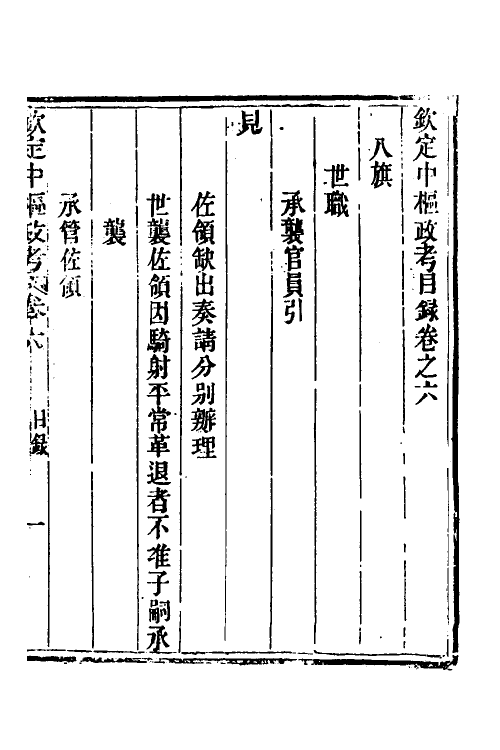 欽定中樞政考目録卷之六
八旗
世職
承襲官員引
見
佐領缺出奏請分别辦理
世襲佐領因騎射平常革退者不准子嗣承
襲
承管佐領
欽定中樞政考 卷六 目録 一